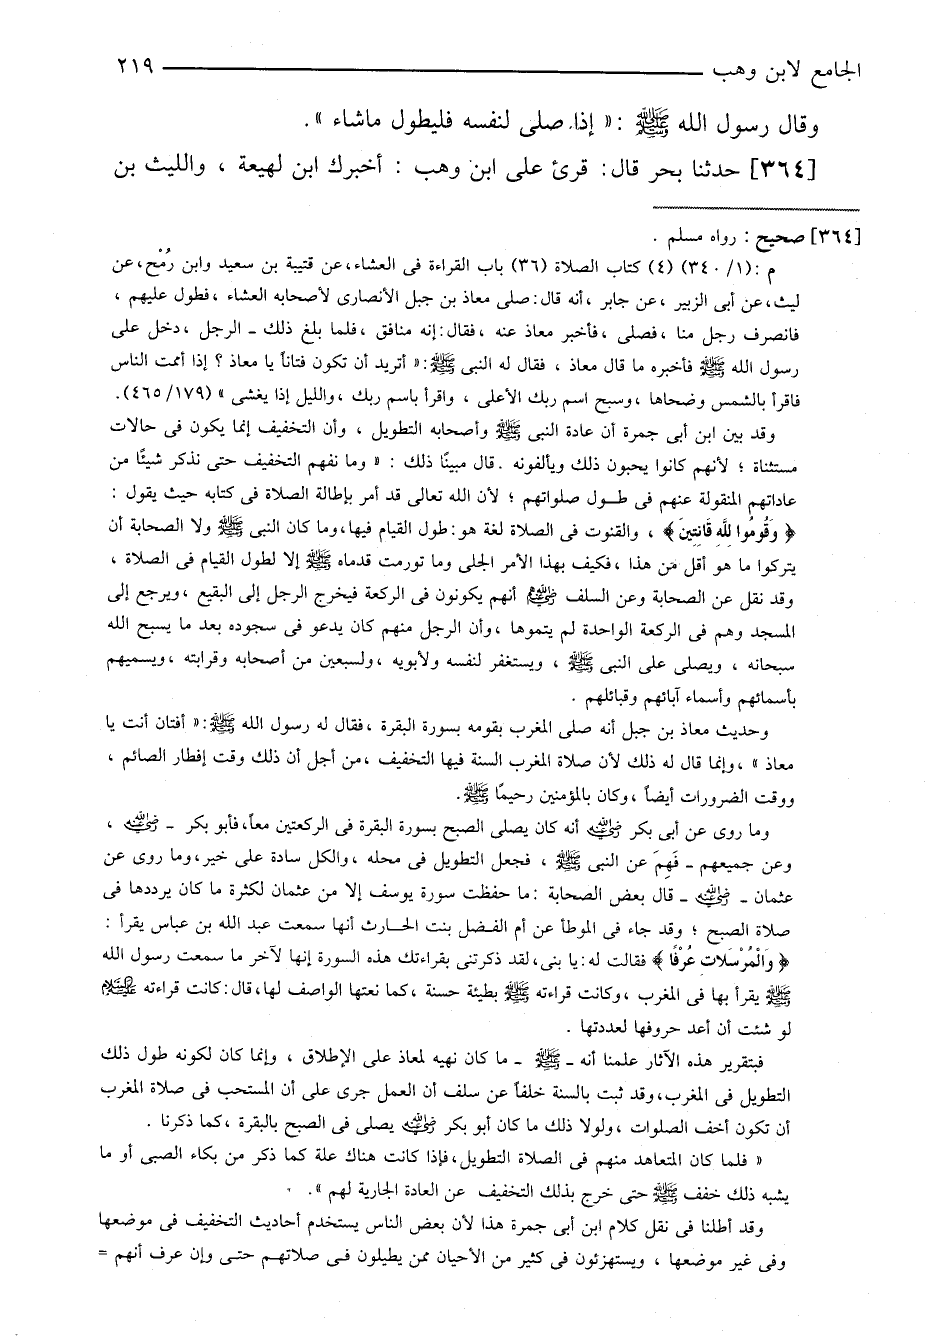 الجامع لابن وهب ٢١٩
وقال رسول الله ﷺ :« إذا صلى لنفسه فليطول ماشاء » .
[٣٦٤] حدثنا بحر قال: قرئ على ابن وهب : أخبرك ابن لهيعة ، والليث بن
[٣٦٤] صحيح : رواه مسلم .
م :(١/ ٣٤٠) (٤) كتاب الصلاة (٣٦) باب القراءة فى العشاء،عن قتيبة بن سعيد وابن رُمْح،عن
ليث،عن أبى الزبير ،عن جابر ،أنه قال:صلى معاذ بن جبل الأنصارى لأصحابه العشاء ،فطول عليهم ،
فانصرف رجل منا ،فصلى ،فأخبر معاذ عنه ،فقال:إنه منافق ،فلما بلغ ذلك ـ الرجل ،دخل على
رسول الله ﷺ فأخبره ما قال معاذ ، فقال له النبى ﷺ:« أتريد أن تكون فتاناً يا معاذ ؟ إذا أممت الناس
فاقرأ بالشمس وضحاها ،وسبح اسم ربك الأعلى ، واقرأ باسم ربك ،والليل إذا يغشى » (٤٦٥/١٧٩).
وقد بين ابن أبى جمرة أن عادة النبى ﷺ وأصحابه التطويل ، وأن التخفيف إنما يكون فى حالات
مستثناة ؛ لأنهم كانوا يحبون ذلك ويألفونه .قال مبينًا ذلك : « وما نفهم التخفيف حتى نذكر شيئًا من
عاداتهم المنقولة عنهم فى طـول صلواتهم ؛ لأن الله تعالى قد أمر بإطالة الصلاة فى كتابه حيث يقول :
﴿ وَقُومُوا لِلَّهِ قَانِتِينَ ﴾ ، والقنوت فى الصلاة لغة هو: طول القيام فيها،وما كان النبى ﷺ ولا الصحابة أن
يتركوا ما هو أقل من هذا ،فكيف بهذا الأمر الجلى وما تورمت قدماه ﷺ إلا لطول القيام فى الصلاة ،
وقد نقل عن الصحابة وعن السلف رضي الله عنهم أنهم يكونون فى الركعة فيخرج الرجل إلى البقيع ،ويرجع إلى
المسجد وهم فى الركعة الواحدة لم يتموها ،وأن الرجل منهم كان يدعو فى سجوده بعد ما يسبح الله
سبحانه ، ويصلى على النبى ﷺ ، ويستغفر لنفسه ولأبويه ،ولسبعين من أصحابه وقرابته ،ويسميهم
بأسمائهم وأسماء آبائهم وقبائلهم .
وحديث معاذ بن جبل أنه صلى المغرب بقومه بسورة البقرة ،فقال له رسول الله ﷺ:« أفتان أنت يا
معاذ » ،وإنما قال له ذلك لأن صلاة المغرب السنة فيها التخفيف ،من أجل أن ذلك وقت إفطار الصائم ،
ووقت الضرورات أيضاً ،وكان بالمؤمنين رحيمًا ﷺ.
وما روى عن أبى بكر رضي الله عنه أنه كان يصلى الصبح بسورة البقرة فى الركعتين معاً،فأبو بكر ـ رضي الله عنه ،
وعن جميعهم ـ فَهِمَ عن النبى ﷺ ، فجعل التطويل فى محله ،والكل سادة على خير،وما روى عن
عثمان ـ رضي الله عنه ـ قال بعض الصحابة :ما حفظت سورة يوسف إلا من عثمان لكثرة ما كان يرددها فى
صلاة الصبح ؛ وقد جاء فى الموطأ عن أم الفـضل بنت الحـارث أنها سمعت عبد الله بن عباس يقرأ :
﴿ وَالْمُرْسَلاتِ عُرْفًا ﴾ فقالت له:يا بنى،لقد ذكرتنى بقراءتك هذه السورة إنها لآخر ما سمعت رسول الله
ﷺ يقرأ بها فى المغرب ،وكانت قراءته ﷺ بطيئة حسنة ،كما نعتها الواصف لها،قال:كانت قراءته عليه السلام
لو شئت أن أعد حروفها لعددتها .
فبتقرير هذه الآثار علمنا أنه ـ ﷺ ـ ما كان نهيه لمعاذ على الإطلاق ، وإنما كان لكونه طول ذلك
التطويل فى المغرب،وقد ثبت بالسنة خلفاً عن سلف أن العمل جرى على أن المستحب فى صلاة المغرب
أن تكون أخف الصلوات ،ولولا ذلك ما كان أبو بكر رضي الله عنه يصلى فى الصبح بالبقرة ،كما ذكرنا .
« فلما كان المتعاهد منهم فى الصلاة التطويل،فإذا كانت هناك علة كما ذكر من بكاء الصبى أو ما
يشبه ذلك خفف ﷺ حتى خرج بذلك التخفيف عن العادة الجارية لهم ».
وقد أطلنا فى نقل كلام ابن أبى جمرة هذا لأن بعض الناس يستخدم أحاديث التخفيف فى موضعها
وفى غير موضعها ، ويستهزئون فى كثير من الأحيان ممن يطيلون فـى صلاتهـم حتـى وإن عرف أنهم =